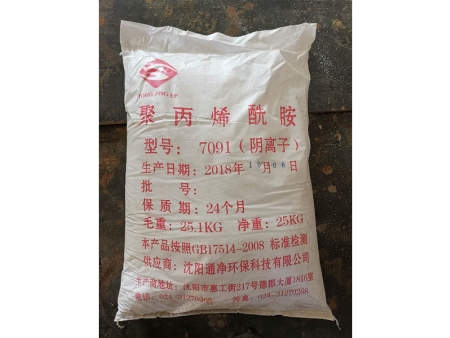 TONG JING EP
聚丙烯酰胺
型号: 7091(阴离子)
生产日期: 2018年10月06日
批 号:
保 质 期: 24个月
毛重: 25.1KG 净重: 25KG
本产品按照GB17514-2008 标准检测
供应商: 沈阳通净环保科技有限公司
生产商地址: 沈阳市惠工街217号德郡大厦1816室
电话: 024-31270208 传真: 024-31270208